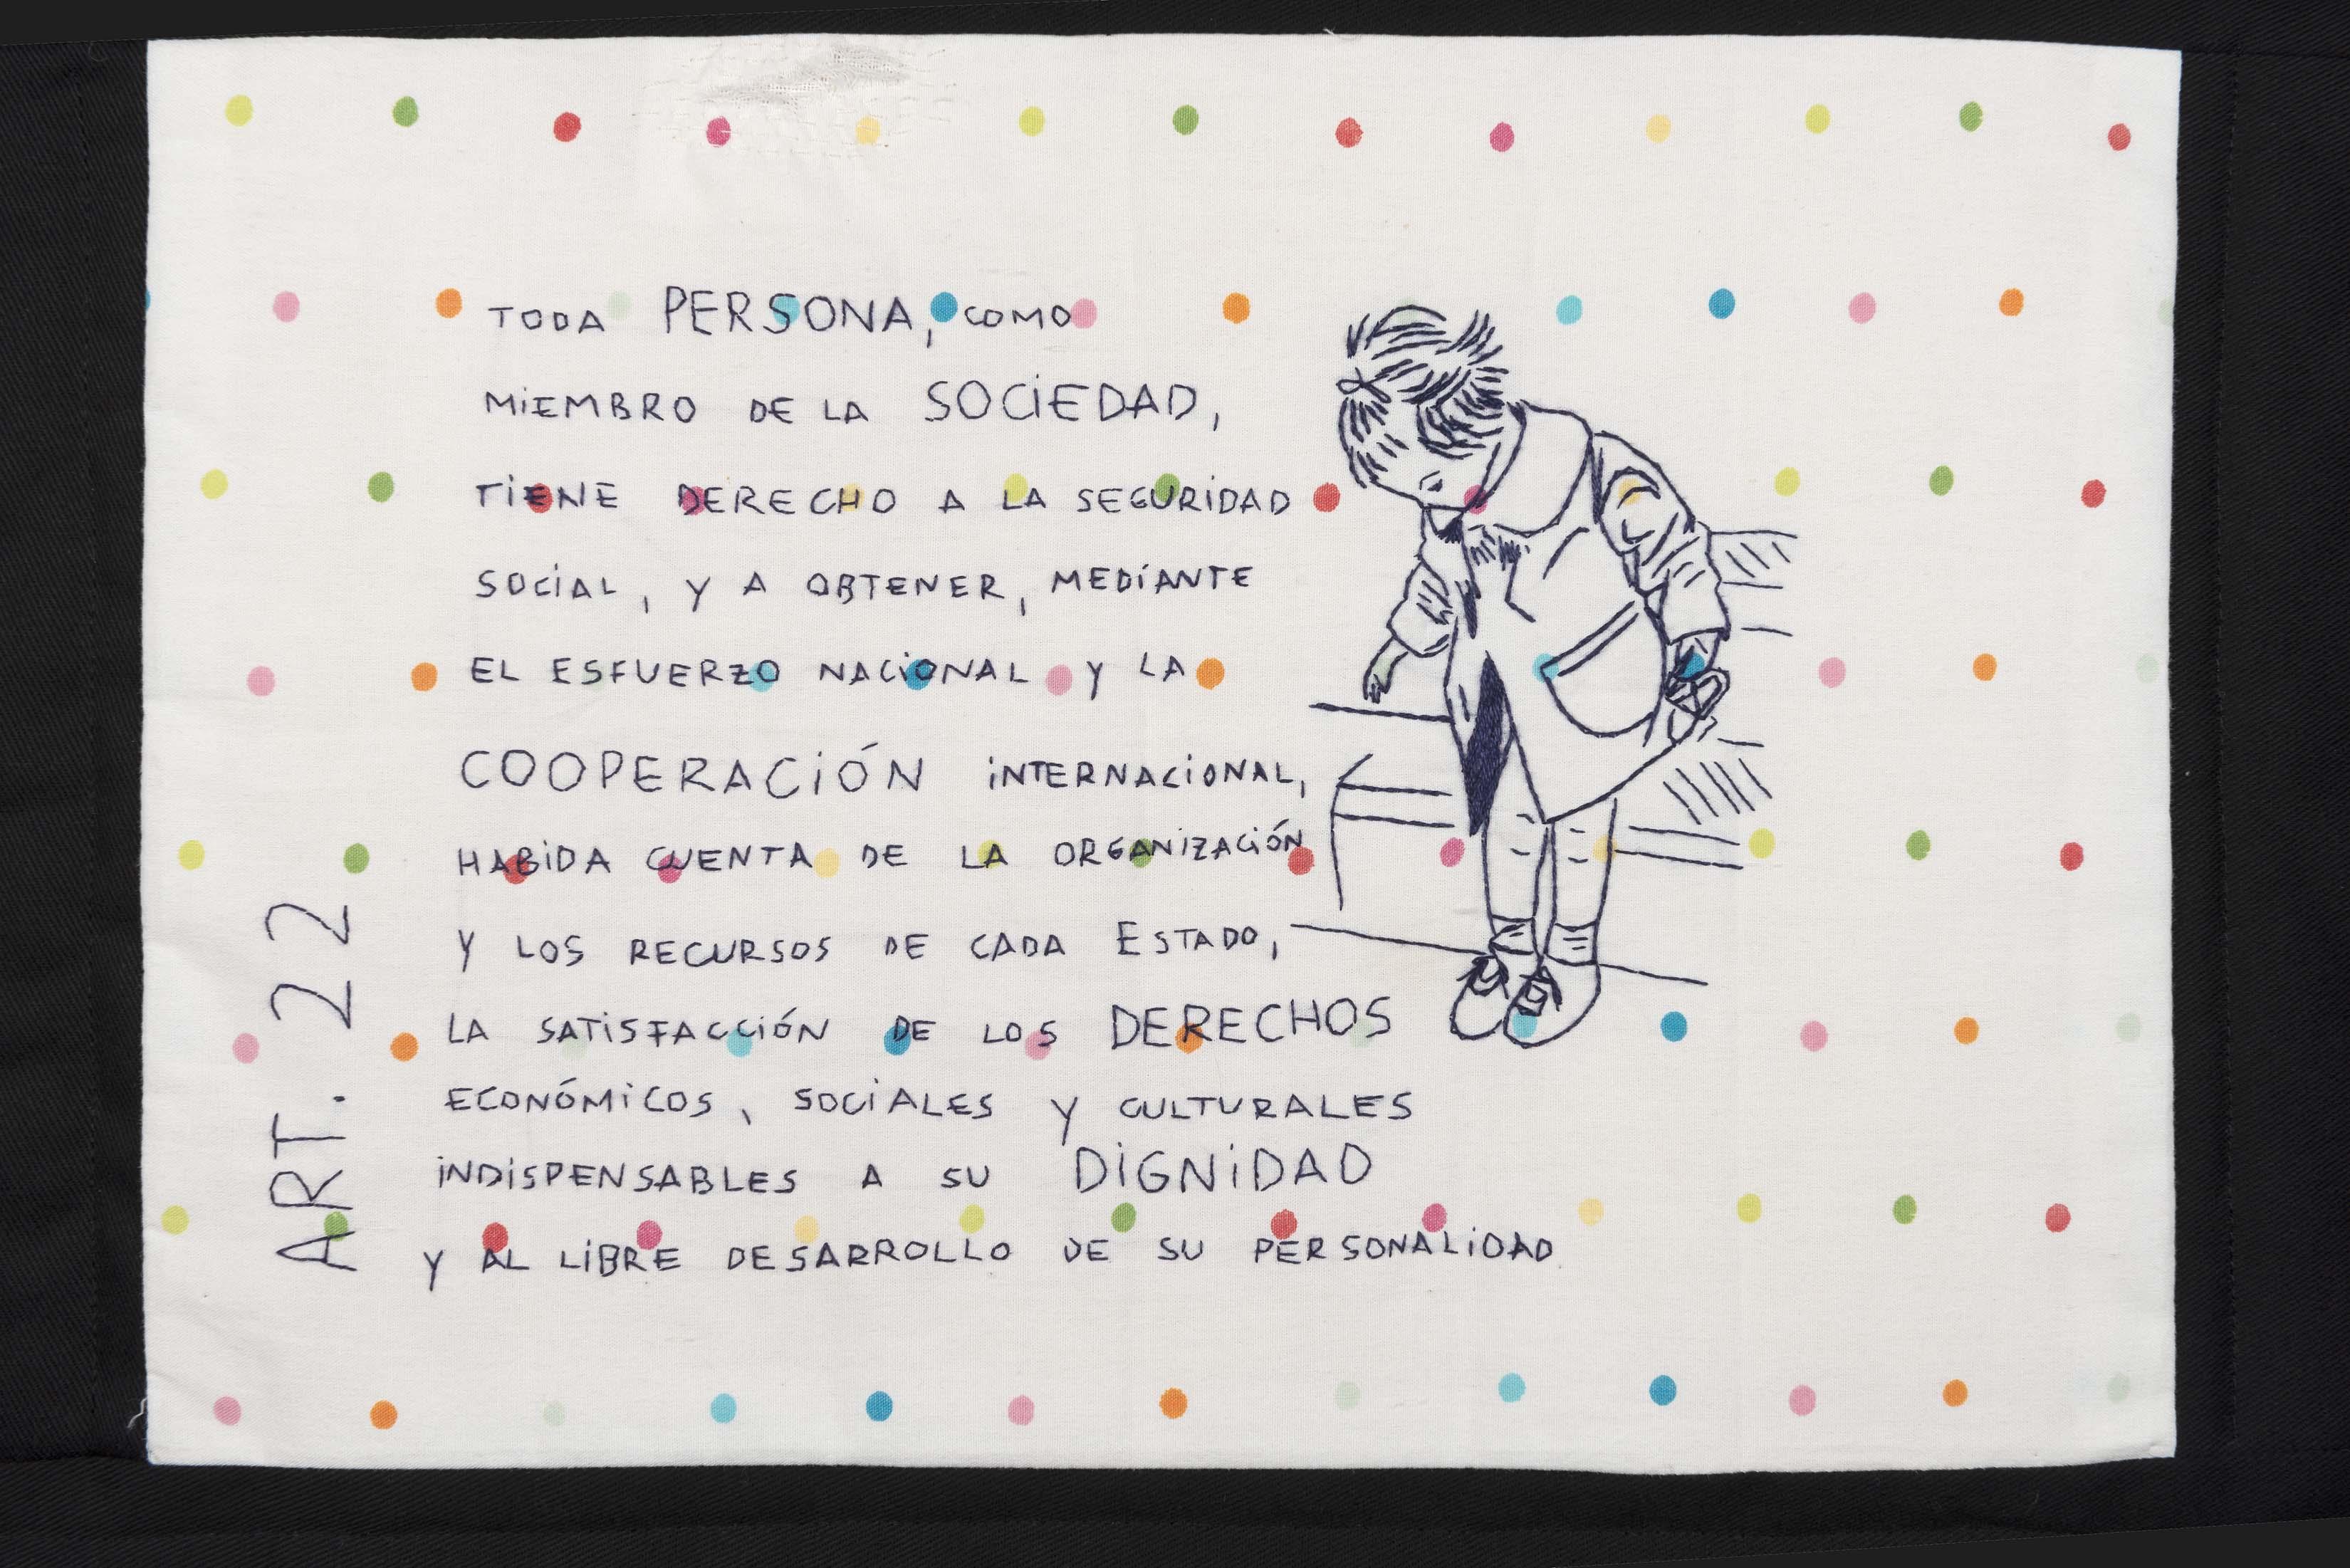 ART. 22
TODA PERSONA, COMO
MiEMBRO DE LA SOCiEDAD,
TiENE DERECHO A LA SEGURiDAD
SOCiAL, Y A OBTENER, MEDiANTE
EL ESFUERZO NACiONAL Y LA
COOPERACiÓN iNTERNACiONAL,
HABiDA CUENTA DE LA ORGANiZACiÓN
Y LOS RECURSOS DE CADA ESTADO,
LA SATiSFACCiÓN DE LOS DERECHOS
ECONÓMiCOS, SOCiALES Y CULTURALES
iNDiSPENSABLES A SU DiGNiDAD
Y AL LiBRE DESARROLLO DE SU PERSONALiDAD